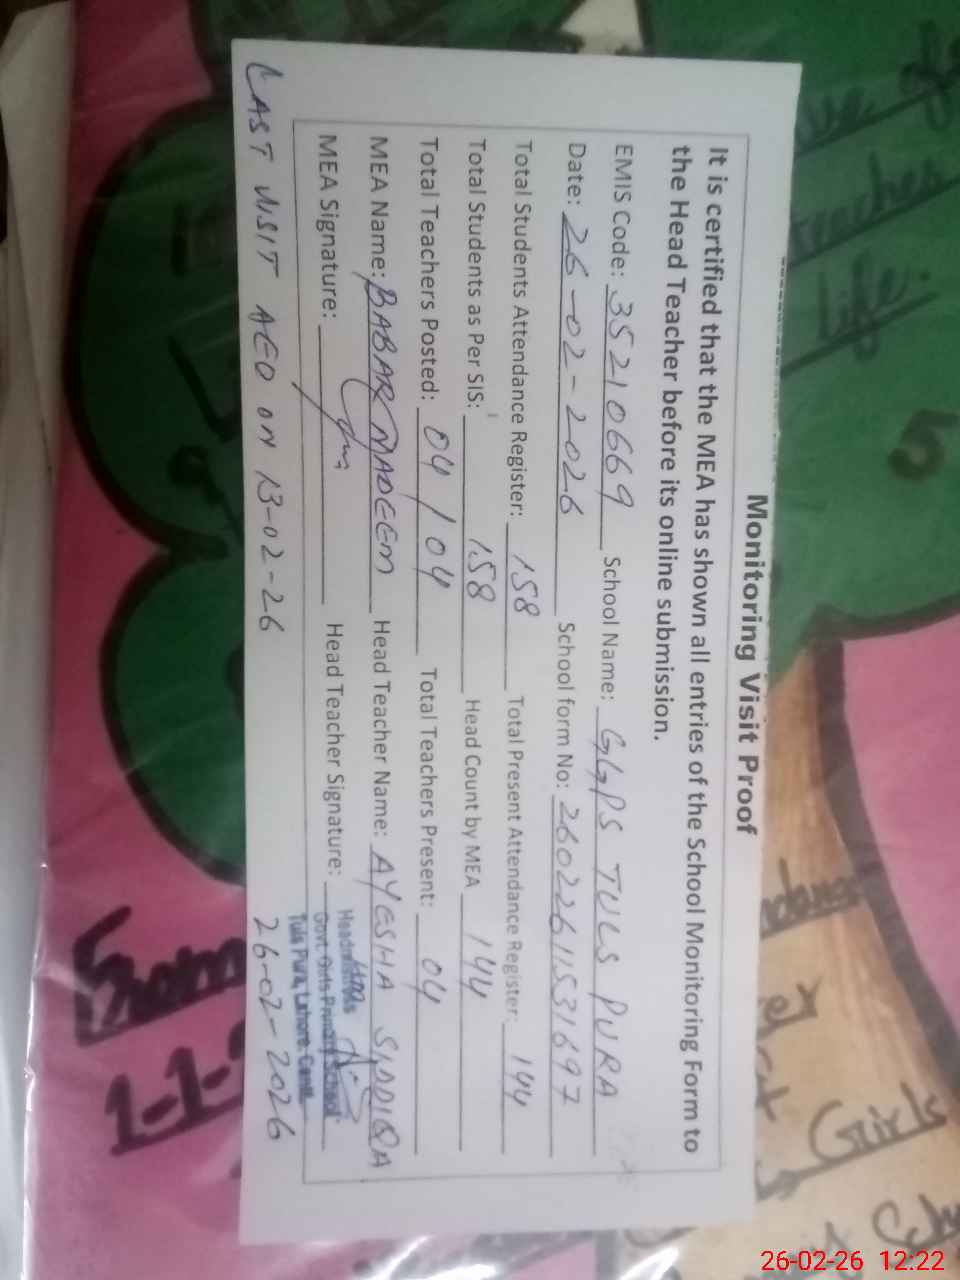 Monitoring Visit Proof
It is certified that the MEA has shown all entries of the School Monitoring Form to
the Head Teacher before its online submission.
EMIS Code: 35210669 School Name: GGPS TULS PURA
Date: 26-02-2026 School form No: 26022611531697
Total Students Attendance Register: 158 Total Present Attendance Register: 144
Total Students as Per SIS: 158 Head Count by MEA 144
Total Teachers Posted: 04/04 Total Teachers Present: 04
MEA Name: BABAR NADEEM Head Teacher Name: AYESHA SIDDIQA
MEA Signature: Head Teacher Signature:
Headmistress
Govt. Girls Primary School
Tuls Pura, Lahore Cantt
LAST VISIT AEO ON 13-02-26 26-02-2026
teaches
life.
5
Girls
26-02-26 12:22